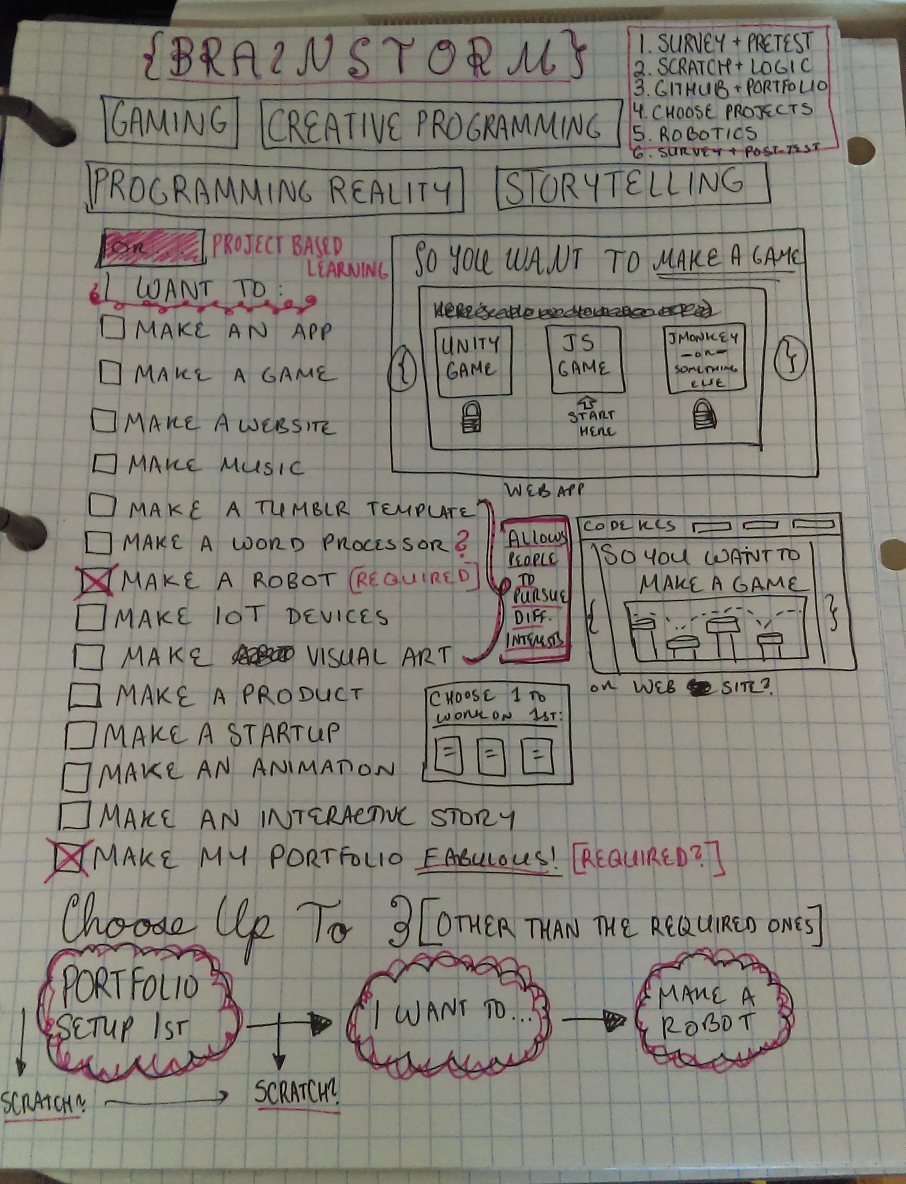 {BRAINSTORM}
1. SURVEY + PRETEST
2. SCRATCH + LOGIC
3. GITHUB + PORTFOLIO
4. CHOOSE PROJECTS
5. ROBOTICS
6. SURVEY + POST-TEST
GAMING
CREATIVE PROGRAMMING
PROGRAMMING REALITY
STORYTELLING
OR
PROJECT BASED
LEARNING
I WANT TO:
MAKE AN APP
MAKE A GAME
MAKE A WEBSITE
MAKE MUSIC
MAKE A TUMBLR TEMPLATE
MAKE A WORD PROCESSOR?
MAKE A ROBOT [REQUIRED]
MAKE IOT DEVICES
MAKE VISUAL ART
MAKE A PRODUCT
MAKE A STARTUP
MAKE AN ANIMATION
MAKE AN INTERACTIVE STORY
MAKE MY PORTFOLIO FABULOUS! [REQUIRED?]
SO YOU WANT TO MAKE A GAME
{
UNITY
GAME
JS
GAME
START
HERE
JMONKEY
-OR-
SOMETHING
ELSE
}
WEB APP
ALLOWS
PEOPLE
TO
PURSUE
DIFF.
INTERESTS
SO YOU WANT TO
MAKE A GAME
{
}
OR WEB SITE?
CHOOSE 1 TO
WORK ON 1ST:
Choose Up To 3 [OTHER THAN THE REQUIRED ONES]
PORTFOLIO
SETUP 1ST
I WANT TO...
MAKE A
ROBOT
SCRATCH?
SCRATCH?